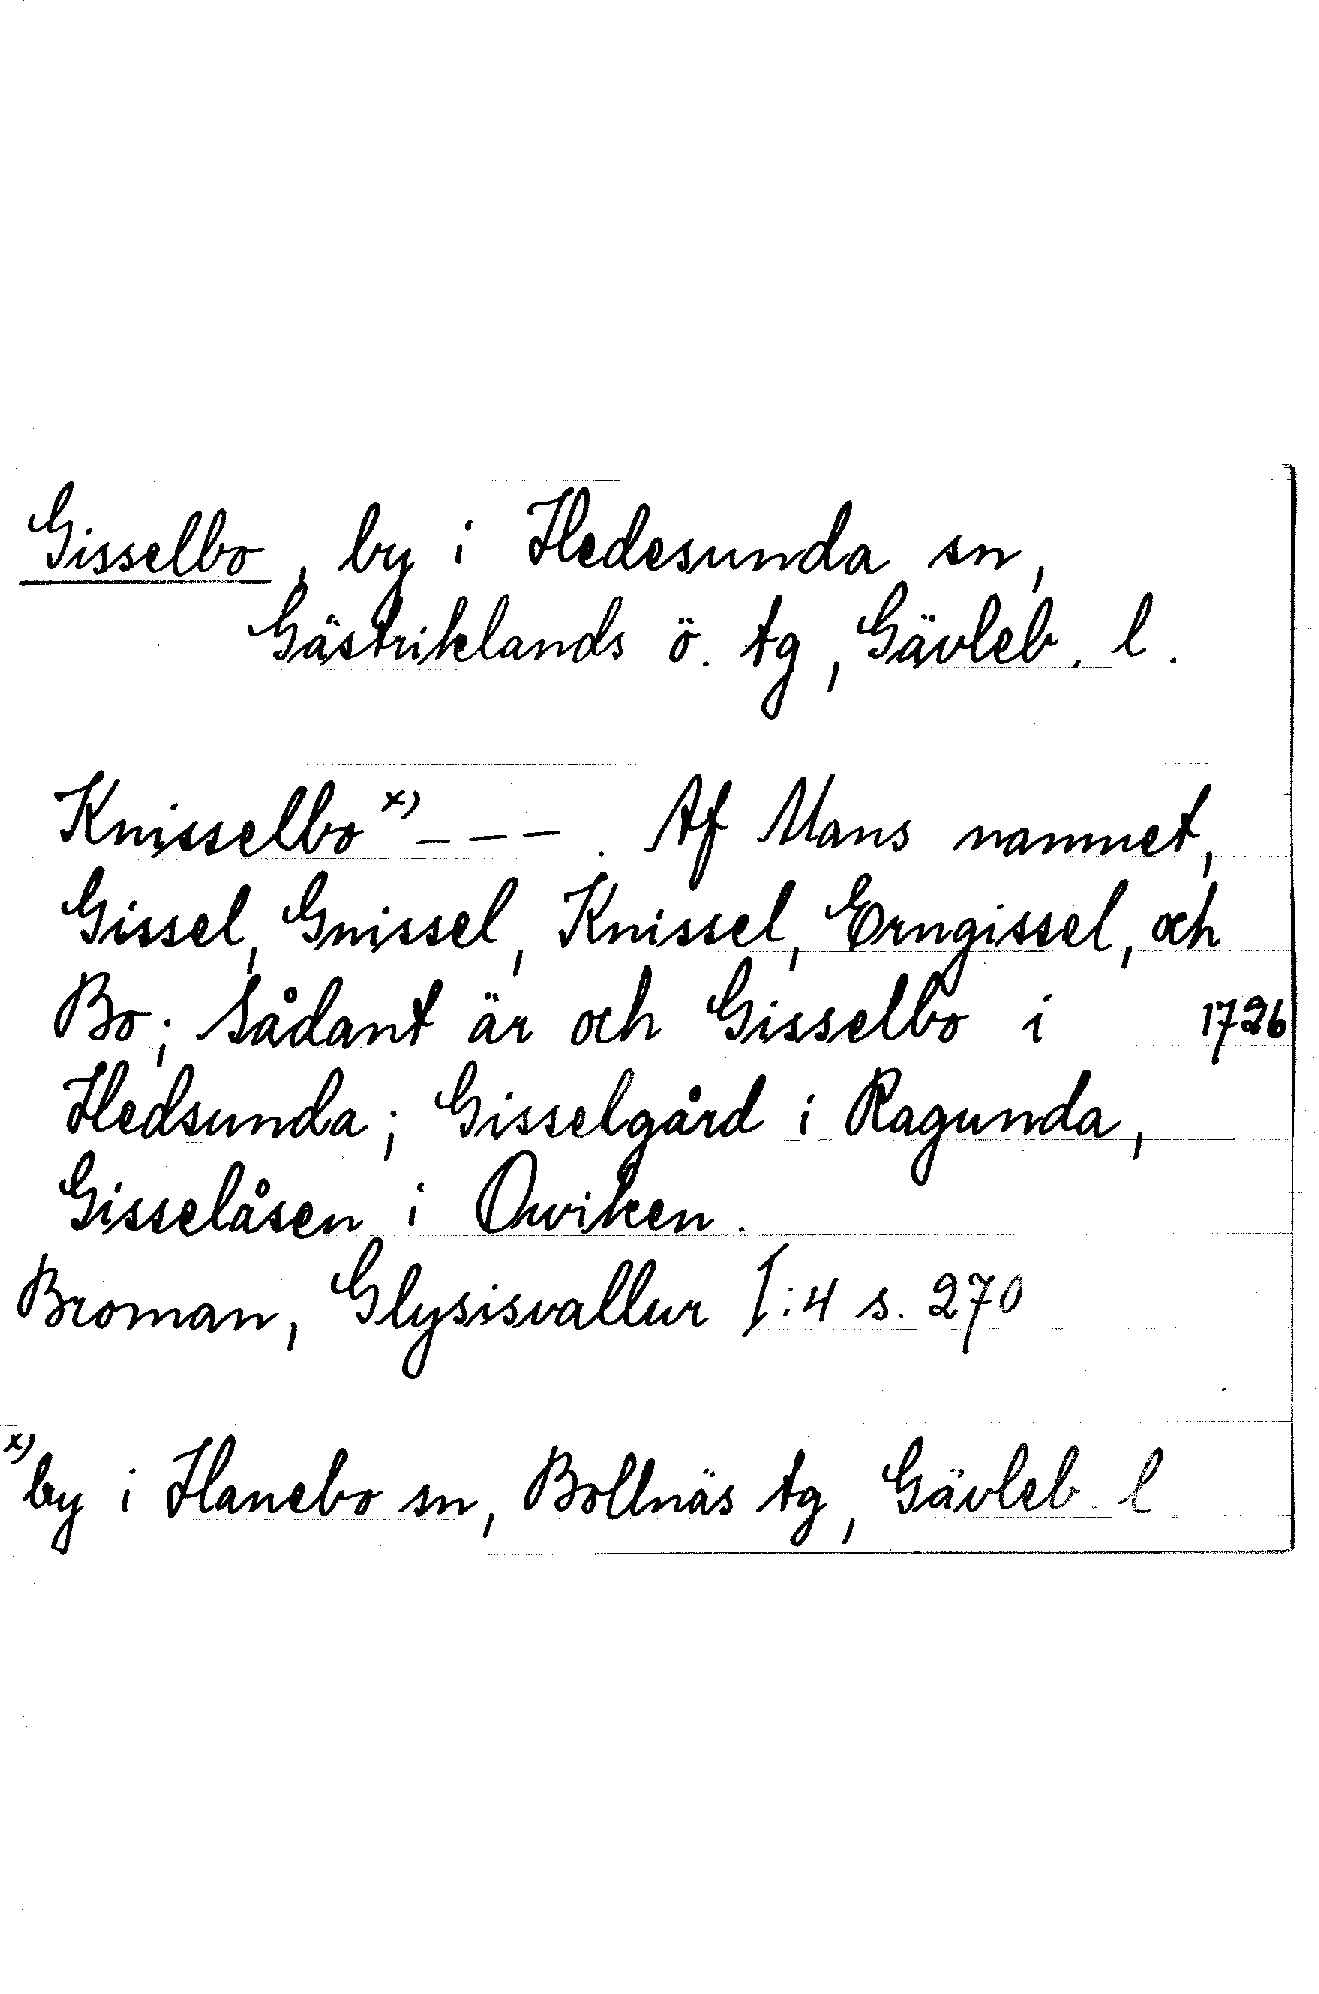 Gisselbo, by i Hedesunda sn,
Gästriklands ö. tg, Gävleb. l.
Knisselbo x) - - - . Af Mans namnet,
Gissel, Gnissel, Knissel, Erngissel, och
Bo; Sådant är och Gisselbo i 1726
Hedsunda; Gisselgård i Ragunda,
Gisselåsen i Owiken.
Broman, Glysisvallur I:4 s. 270
x) by i Hanebo sn, Bollnäs tg, Gävleb. l